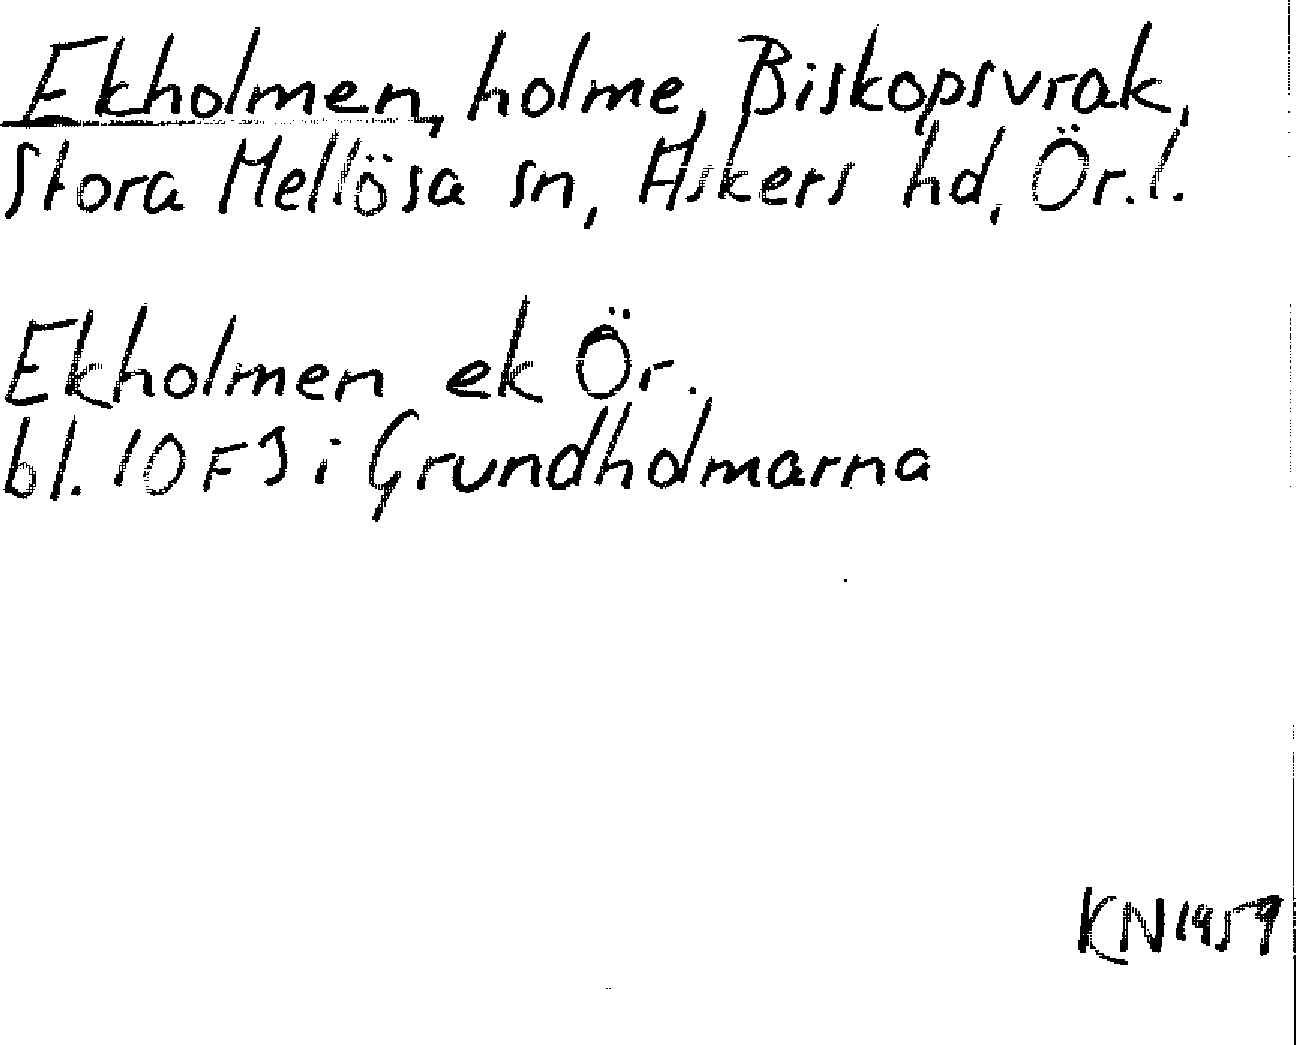 Ekholmen, holme, Biskopsvrak,
Stora Mellösa sn, Askers hd, Ör.l.
Ekholmen ek Ör.
bl. 10F9 i Grundholmarna
KN 1959